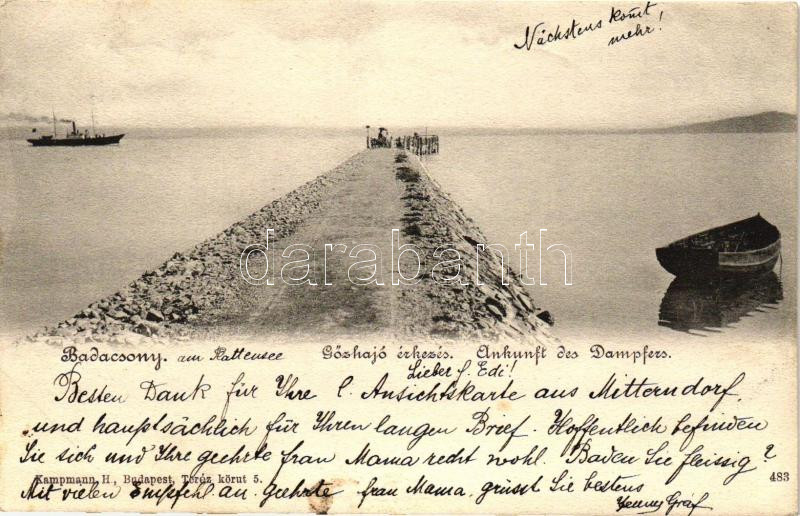 Nächstens komt
mehr!
darabanth.com
Badacsony. am Plattensee Gőzhajó érkezés. Ankunft des Dampfers.
Lieber f. Edi!
Besten Dank für Ihre l. Ansichtskarte aus Mitterndorf,
und hauptsächlich für Ihren langen Brief. Hoffentlich befinden
Sie sich und Ihre geehrte frau Mama recht wohl. Baden Sie fleissig?
Kampmann, H., Budapest, Teréz körut 5. 483
Mit vielen Empfehl. an geehrte frau Mama, grüsst Sie bestens